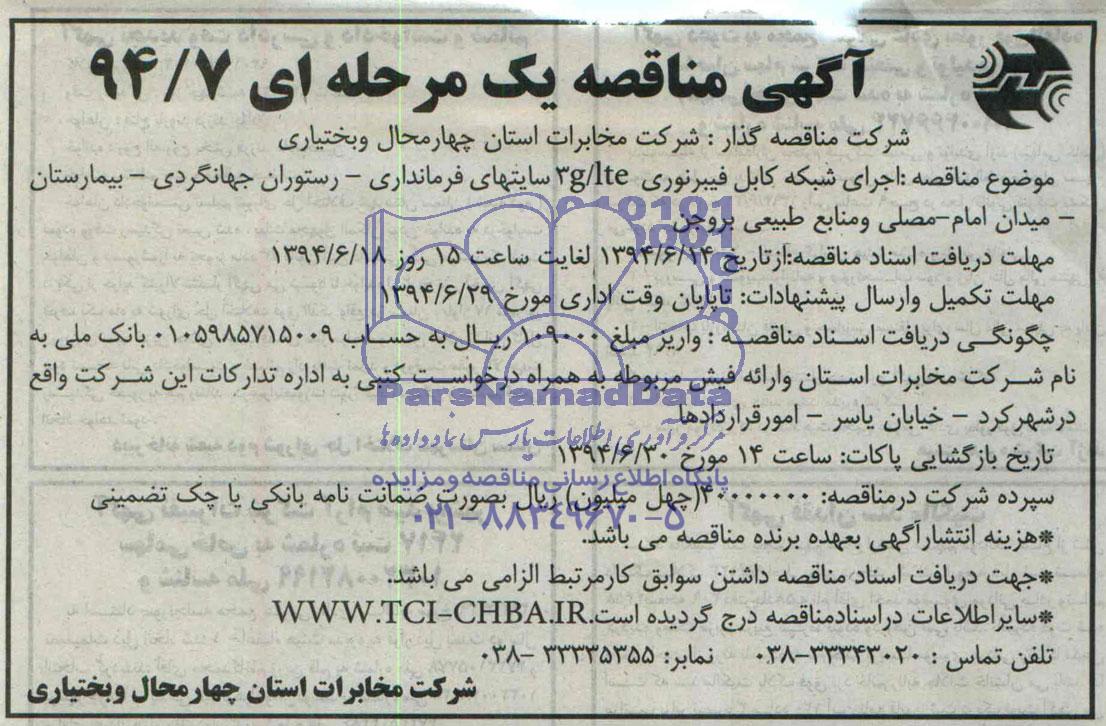 آگهی مناقصه یک مرحله ای ۹۴/۷
شرکت مناقصه گذار : شرکت مخابرات استان چهارمحال وبختیاری
موضوع مناقصه :اجرای شبکه کابل فیبرنوری ۳g/lte سایتهای فرمانداری - رستوران جهانگردی - بیمارستان
- میدان امام-مصلی ومنابع طبیعی بروجن
مهلت دریافت اسناد مناقصه:ازتاریخ ۱۳۹۴/۶/۱۴ لغایت ساعت ۱۵ روز ۱۳۹۴/۶/۱۸
مهلت تکمیل وارسال پیشنهادات: تاپایان وقت اداری مورخ ۱۳۹۴/۶/۲۹
چگونگی دریافت اسناد مناقصه : واریز مبلغ ۱۰۹۰۰۰ ریال به حساب ۰۱۰۵۹۸۵۷۱۵۰۰۹ بانک ملی به
نام شرکت مخابرات استان وارائه فیش مربوطه به همراه درخواست کتبی به اداره تدارکات این شرکت واقع
درشهرکرد - خیابان یاسر - امورقراردادها
تاریخ بازگشایی پاکات: ساعت ۱۴ مورخ ۱۳۹۴/۶/۳۰
سپرده شرکت درمناقصه: ۴۰۰۰۰۰۰۰(چهل میلیون)ریال بصورت ضمانت نامه بانکی یا چک تضمینی
*هزینه انتشارآگهی بعهده برنده مناقصه می باشد.
*جهت دریافت اسناد مناقصه داشتن سوابق کارمرتبط الزامی می باشد.
*سایراطلاعات دراسنادمناقصه درج گردیده است.WWW.TCI-CHBA.IR
تلفن تماس : ۳۳۳۴۳۰۲۰-۰۳۸ نمابر: ۳۳۳۳۵۳۵۵ -۰۳۸
شرکت مخابرات استان چهارمحال وبختیاری
ParsNamadData
مرکز فرآوری اطلاعات پارس نماد داده ها
پایگاه اطلاع رسانی مناقصه و مزایده
۰۲۱-۸۸۳۴۹۶۷۰-۵